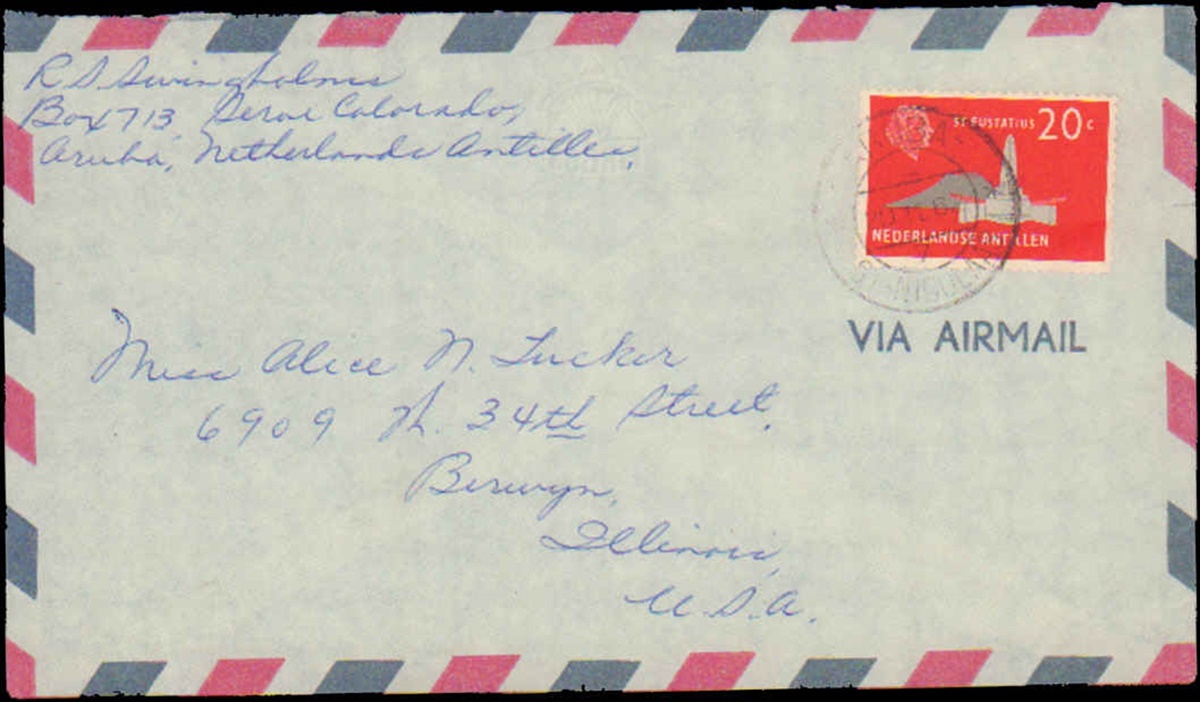 R S Swingholmes
Box 713, Seroe Colorado,
Aruba, Netherlands Antilles,
ST EUSTATIUS 20 c
NEDERLANDSE ANTILLEN
VIA AIRMAIL
Miss Alice N. Tucker
6909 W. 34th Street,
Berwyn,
Illinois,
U.S.A.